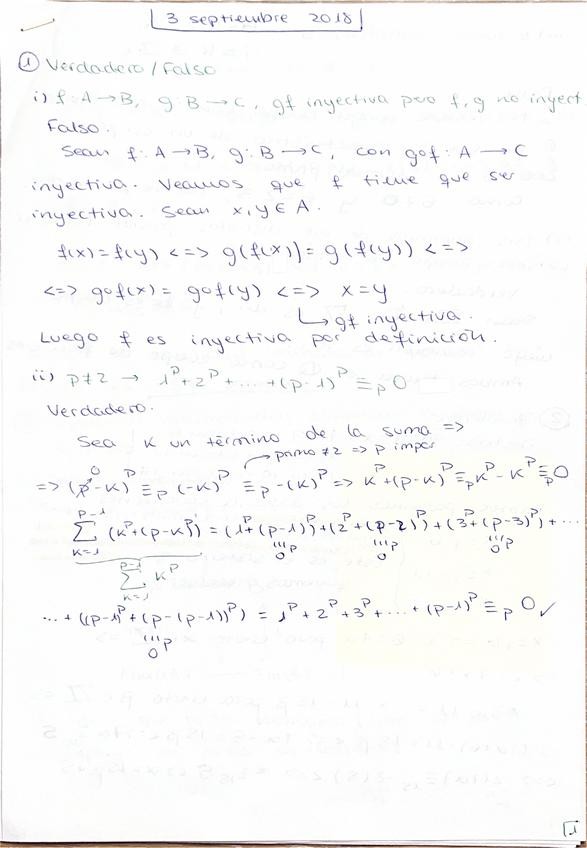 3 septiembre 2018
① Verdadero/Falso
i) f: A→B, g: B→C, gf inyectiva pero f, g no inyect
Falso.
Sean f: A→B, g: B→C, con gof: A→C
inyectiva. Veamos que f tiene que ser
inyectiva. Sean x, y ∈ A.
f(x) = f(y) <=> g(f(x)) = g(f(y)) <=>
<=> gof(x) = gof(y) <=> x = y
↳ gf inyectiva.
Luego f es inyectiva por definición.
ii) p≠2 → 1^p + 2^p + ... + (p-1)^p ≡_p 0
Verdadero.
Sea K un término de la suma =>
primo ≠2 => p impar
=> (p-K)^p ≡_p (-K)^p ≡_p -(K)^p => K^p + (p-K)^p ≡_p K^p - K^p ≡_p 0
∑_{K=1}^{p-1} (K^p + (p-K)^p) = (1^p + (p-1)^p) + (2^p + (p-2)^p) + (3^p + (p-3)^p) + ...
≡_p 0 ≡_p 0 ≡_p 0
∑_{K=1}^{p-1} K^p
... + ((p-1)^p + (p-(p-1))^p) = 1^p + 2^p + 3^p + ... + (p-1)^p ≡_p 0 ✓
≡_p 0
1